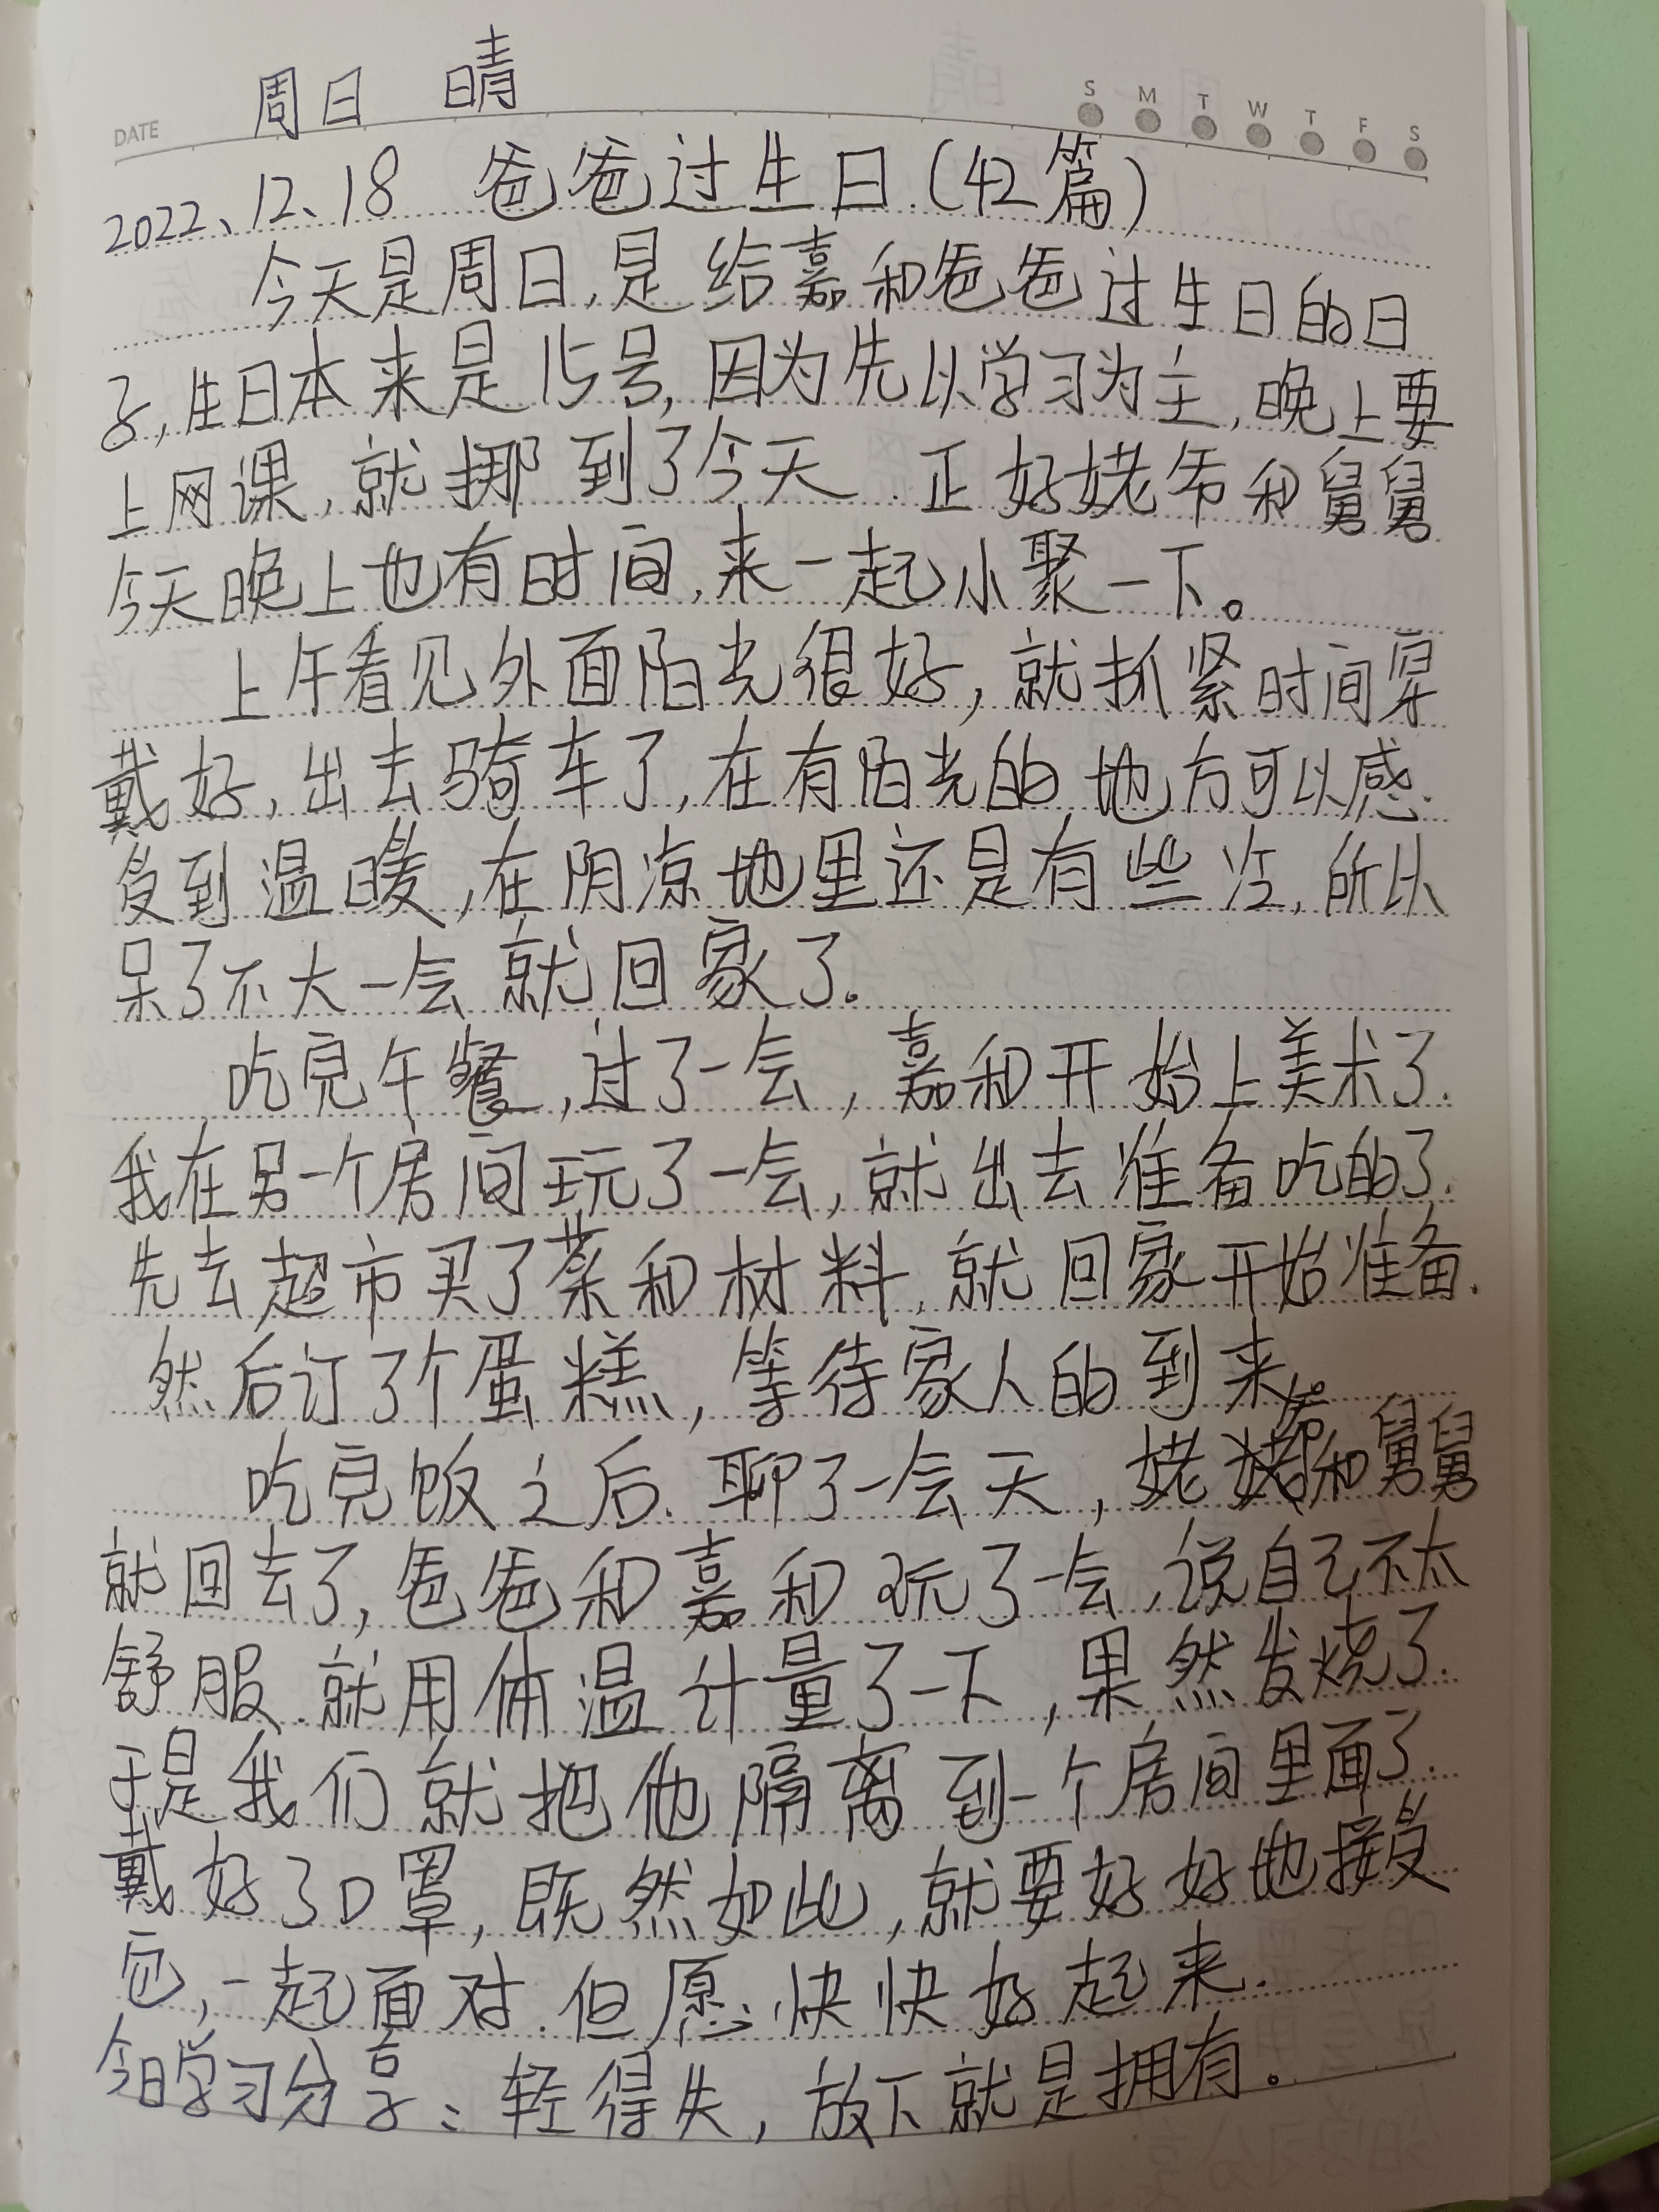 周日 晴
DATE
S M T W T F S
2022、12、18 爸爸过生日(42篇)
今天是周日,是给嘉和爸爸过生日的日
子,生日本来是15号,因为先以学习为主,晚上要
上网课,就挪到了今天.正好姥爷和舅舅
今天晚上也有时间,来一起小聚一下。
上午看见外面阳光很好,就抓紧时间穿
戴好,出去骑车了,在有阳光的地方可以感
受到温暖,在阴凉地里还是有些冷,所以
呆了不大一会就回家了。
吃完午餐,过了一会,嘉和开始上美术了.
我在另一个房间玩了一会,就出去准备吃的了.
先去超市买了菜和材料,就回家开始准备.
然后订了个蛋糕,等待家人的到来。
吃完饭之后.聊了一会天,姥爷和舅舅
就回去了,爸爸和嘉和玩了一会,说自己不太
舒服.就用体温计量了一下,果然发烧了.
于是我们就把他隔离到一个房间里面了.
戴好了口罩,既然如此,就要好好地接受
它,一起面对.但愿快快好起来.
今日学习分享:轻得失,放下就是拥有。